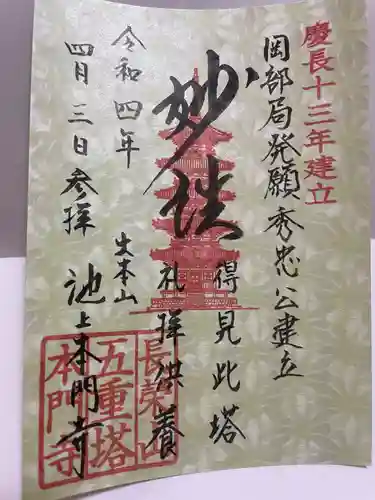 慶長十三年建立
岡部局発願秀忠公建立
妙塔
得見此塔
礼拝供養
令和四年
四月三日参拝
大本山
池上本門寺
長栄山
五重塔
本門寺